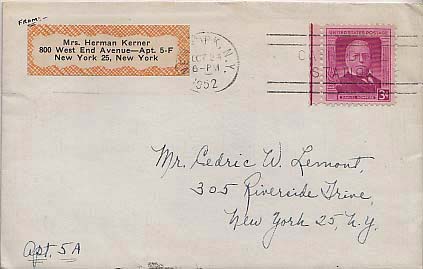 FROM:-
Mrs. Herman Kerner
800 West End Avenue—Apt. 5-F
New York 25, New York
N.Y.
6-PM
1952
UNITED STATES POSTAGE
3¢
Mr. Cedric W. Lemont,
305 Riverside Drive,
New York 25, N.Y.
Apt. 5A